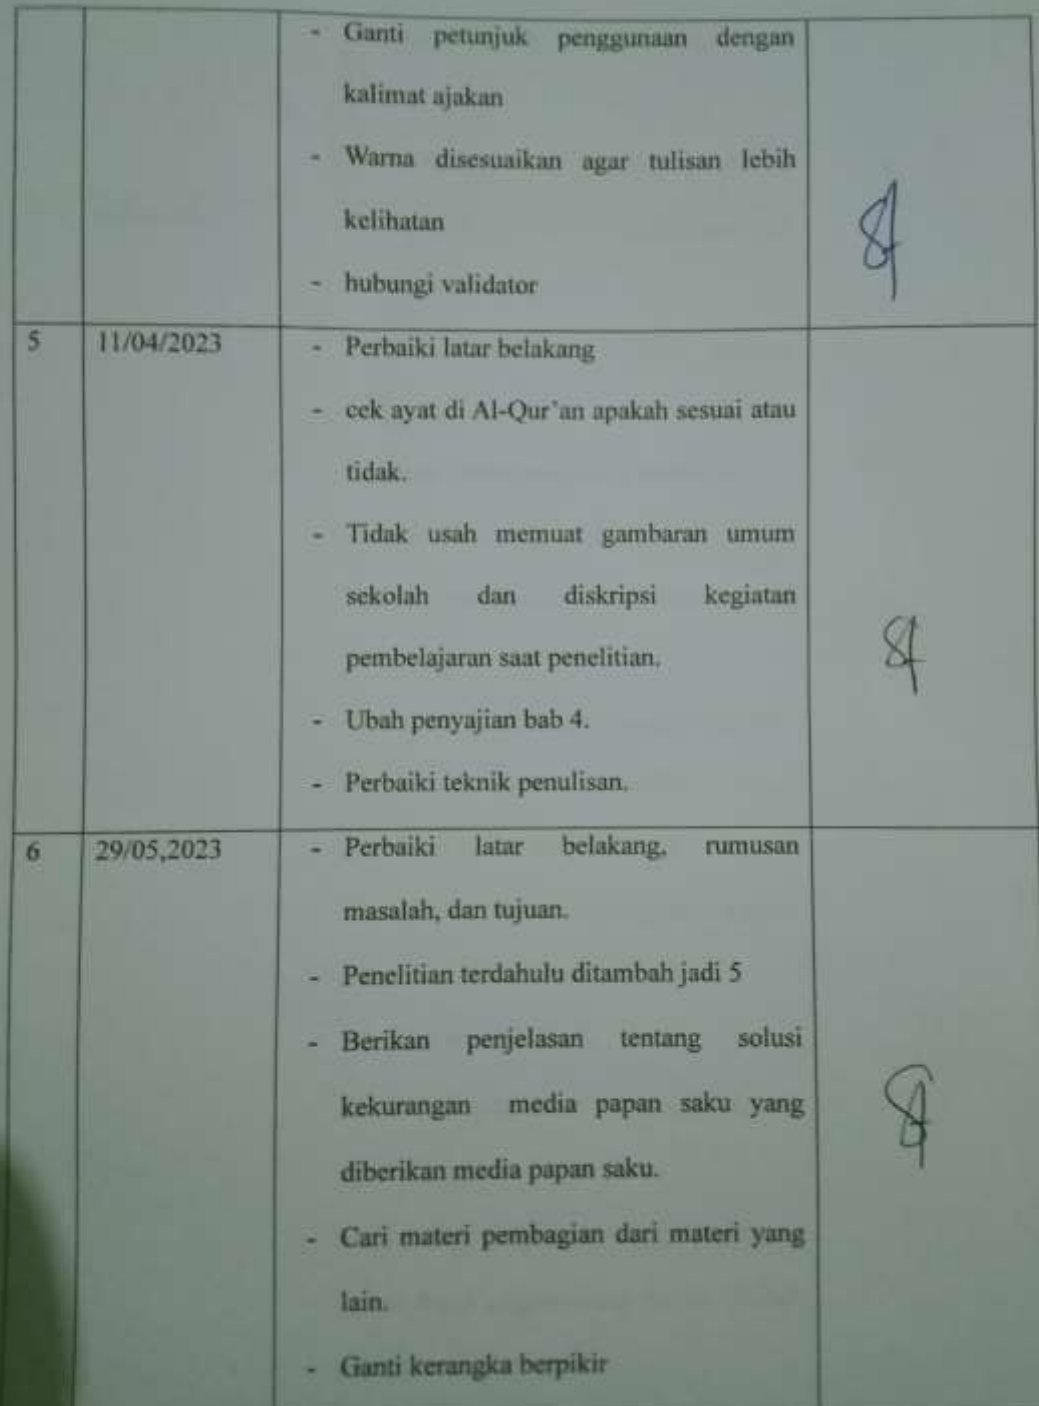 - Ganti petunjuk penggunaan dengan
kalimat ajakan
- Warna disesuaikan agar tulisan lebih
kelihatan
- hubungi validator
5 11/04/2023 - Perbaiki latar belakang
- cek ayat di Al-Qur'an apakah sesuai atau
tidak.
- Tidak usah memuat gambaran umum
sekolah dan diskripsi kegiatan
pembelajaran saat penelitian.
- Ubah penyajian bab 4.
- Perbaiki teknik penulisan.
6 29/05,2023 - Perbaiki latar belakang, rumusan
masalah, dan tujuan.
- Penelitian terdahulu ditambah jadi 5
- Berikan penjelasan tentang solusi
kekurangan media papan saku yang
diberikan media papan saku.
- Cari materi pembagian dari materi yang
lain.
- Ganti kerangka berpikir